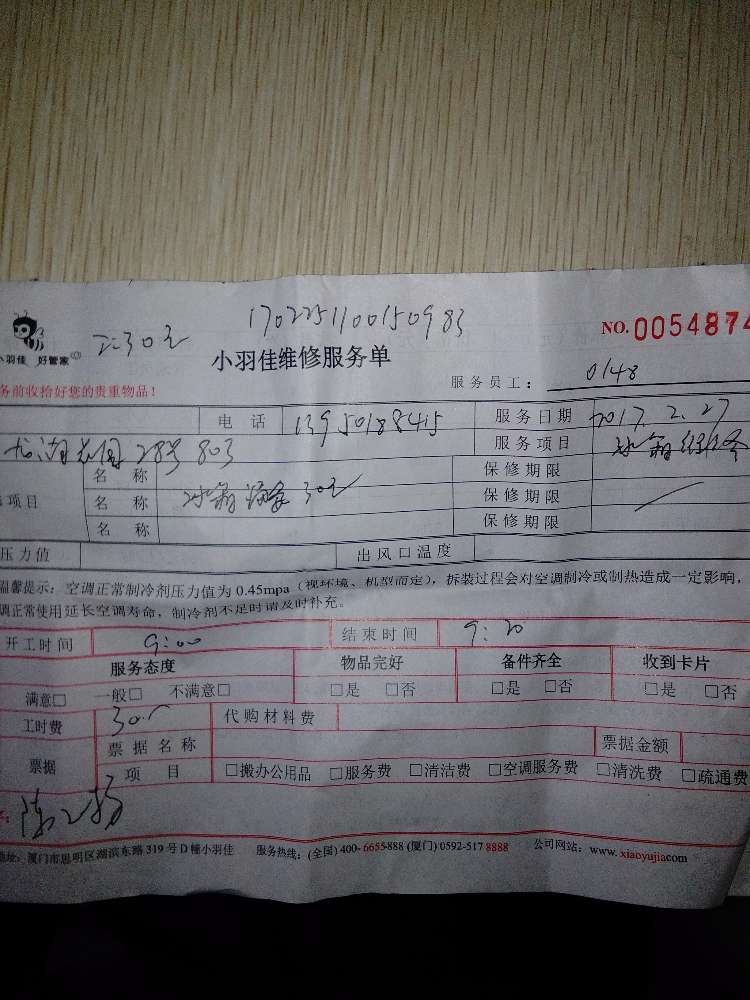 170225110015098
NO.0054874
小羽佳 好管家
小羽佳维修服务单
务前收拾好您的贵重物品！
服务员工： 0148
电 话 13950188415 服务日期 2017.2.27
龙湖花园28号803 服务项目 冰箱维修
名 称 保修期限
项目 名 称 冰箱 30元 保修期限
名 称 保修期限
压力值 出风口温度
温馨提示：空调正常制冷剂压力值为0.45mpa（视环境、机型而定），拆装过程会对空调制冷或制热造成一定影响，
调正常使用延长空调寿命，制冷剂不足时请及时补充。
开工时间 9:00 结束时间 9:20
服务态度 物品完好 备件齐全 收到卡片
满意□ 一般□ 不满意□ □是 □否 □是 □否 □是 □否
工时费 30 代购材料费
票据 票据名称 票据金额
项 目 □搬办公用品 □服务费 □清洁费 □空调服务费 □清洗费 □疏通费
地址：厦门市思明区湖滨东路319号D幢小羽佳 服务热线：(全国) 400-6655-888 (厦门) 0592-517 8888 公司网站：www.xiaoyujiacom